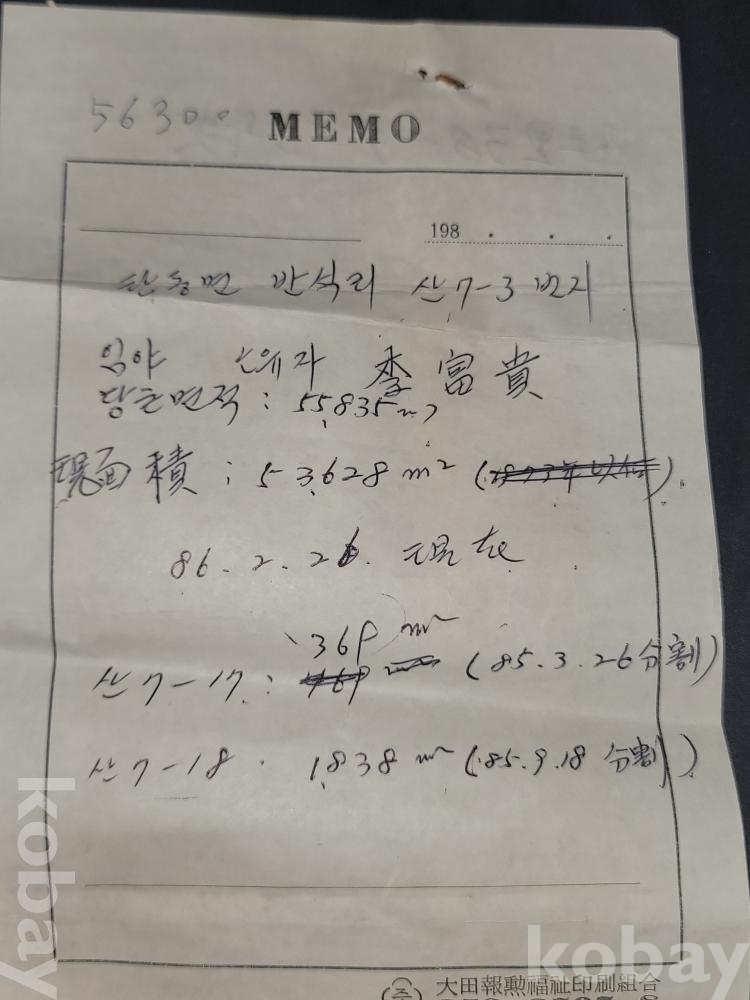 56300
MEMO
198 . . .
탄동면 반석리 산7-3 번지
임야 소유자 李富貴
당초면적 : 55,835㎡
現面積 : 53,628 m² ( )
86. 2. 26. 現在
369 m²
산7-17 : (85. 3. 26 分割)
산7-18 . 1,838 m² (85. 9. 18 分割)
大田報勲福祉印刷組合
kobay
kobay